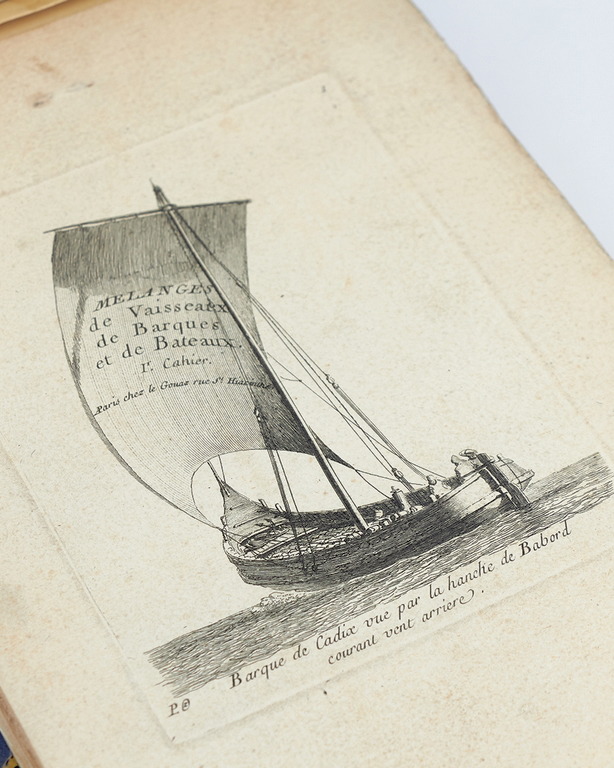 MELANGES
de Vaisseaux
de Barques
et de Bateaux.
Ir. Cahier.
Paris chez le Gouaz rue St. Hiacinthe
Barque de Cadix vue par la hanche de Babord
courant vent arriere.